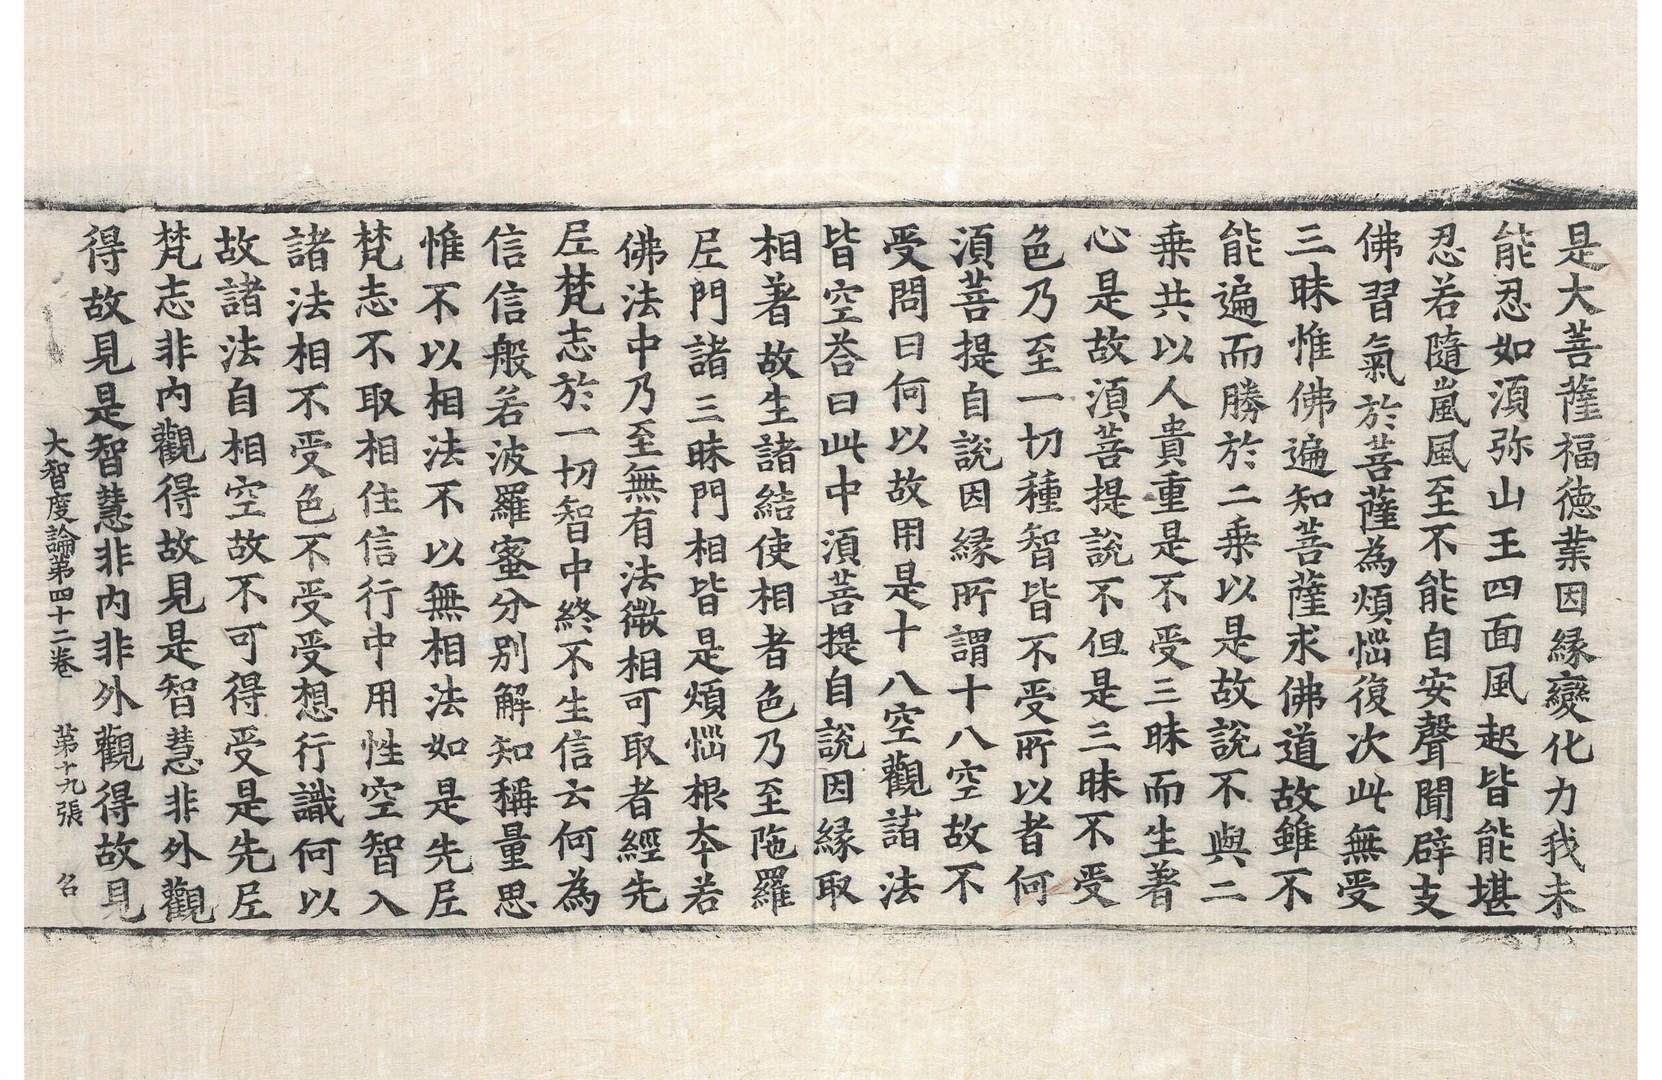 是大菩薩福德業因緣變化力我未
能忍如湏弥山王四面風起皆能堪
忍若隨嵐風至不能自安聲聞辟支
佛習氣於菩薩為煩惱復次此無受
三昧惟佛遍知菩薩求佛道故雖不
能遍而勝於二乗以是故說不與二
乗共以人貴重是不受三昧而生著
心是故湏菩提說不但是三昧不受
色乃至一切種智皆不受所以者何
湏菩提自說因緣所謂十八空故不
受問曰何以故用是十八空觀諸法
皆空荅曰此中湏菩提自說因緣取
相著故生諸結使相者色乃至陁羅
尼門諸三昧門相皆是煩惱根夲若
佛法中乃至無有法微相可取者經先
尼梵志於一切智中終不生信云何為
信信般若波羅蜜分別解知稱量思
惟不以相法不以無相法如是先尼
梵志不取相住信行中用性空智入
諸法相不受色不受受想行識何以
故諸法自相空故不可得受是先尼
梵志非內觀得故見是智慧非外觀
得故見是智慧非內非外觀得故見
大智度論第四十二卷　第十九張　名